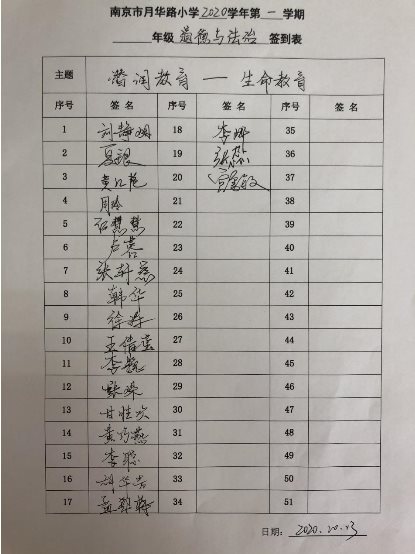 南京市月华路小学2020学年第一学期
年级 道德与法治 签到表
主题 教育 — 生命教育
序号 签 名 序号 签 名 序号 签 名
1 刘静娴 18 李烨 35
2 夏银 19 张磊 36
3 黄红艳 20 37
4 周玲 21 38
5 石慧慧 22 39
6 卢蓉 23 40
7 张轩慈 24 41
8 韩华 25 42
9 徐涛 26 43
10 王倩莹 27 44
11 李凯 28 45
12 29 46
13 甘佳次 30 47
14 黄巧燕 31 48
15 李聪 32 49
16 33 50
17 34 51
日期: 2020.10.13